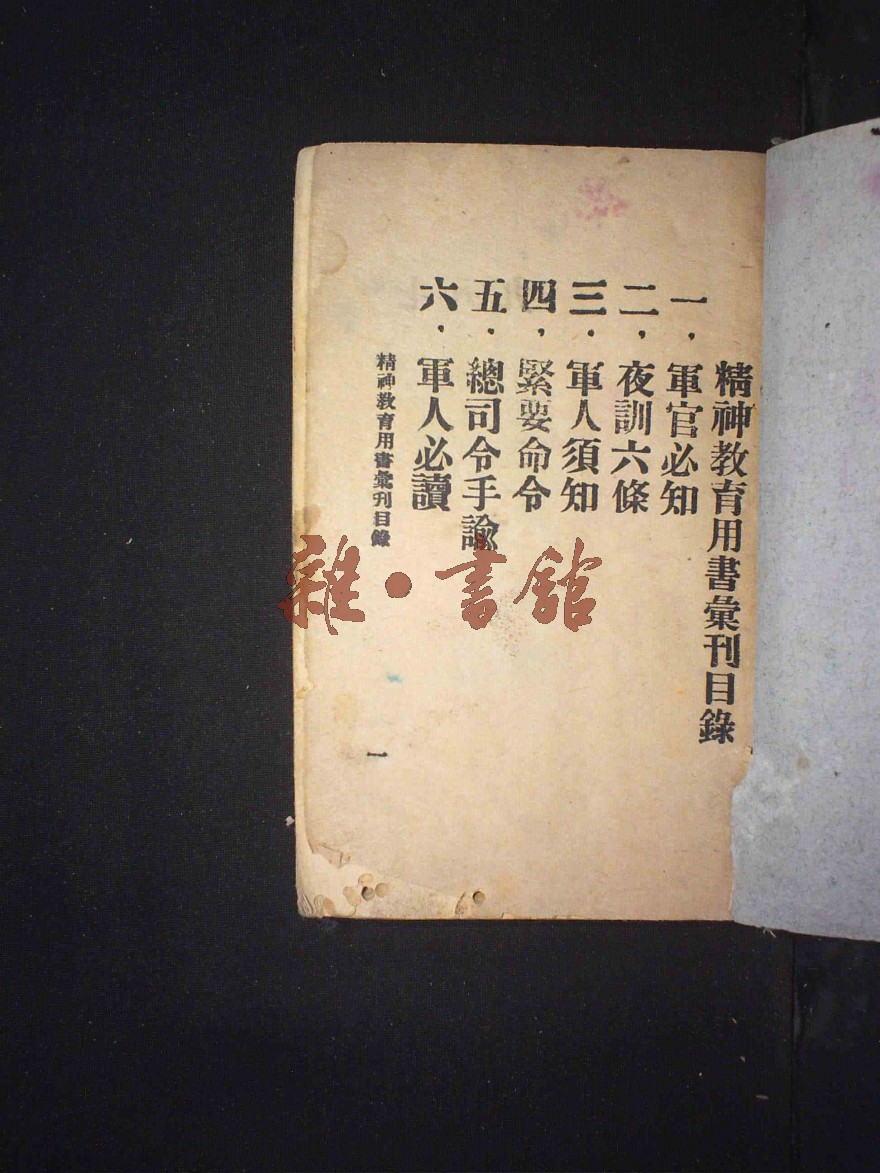 精神教育用書彙刊目錄
一，軍官必知
二，夜訓六條
三，軍人須知
四，緊要命令
五，總司令手諭
六，軍人必讀
精神教育用書彙刊目錄
一
雜·書館